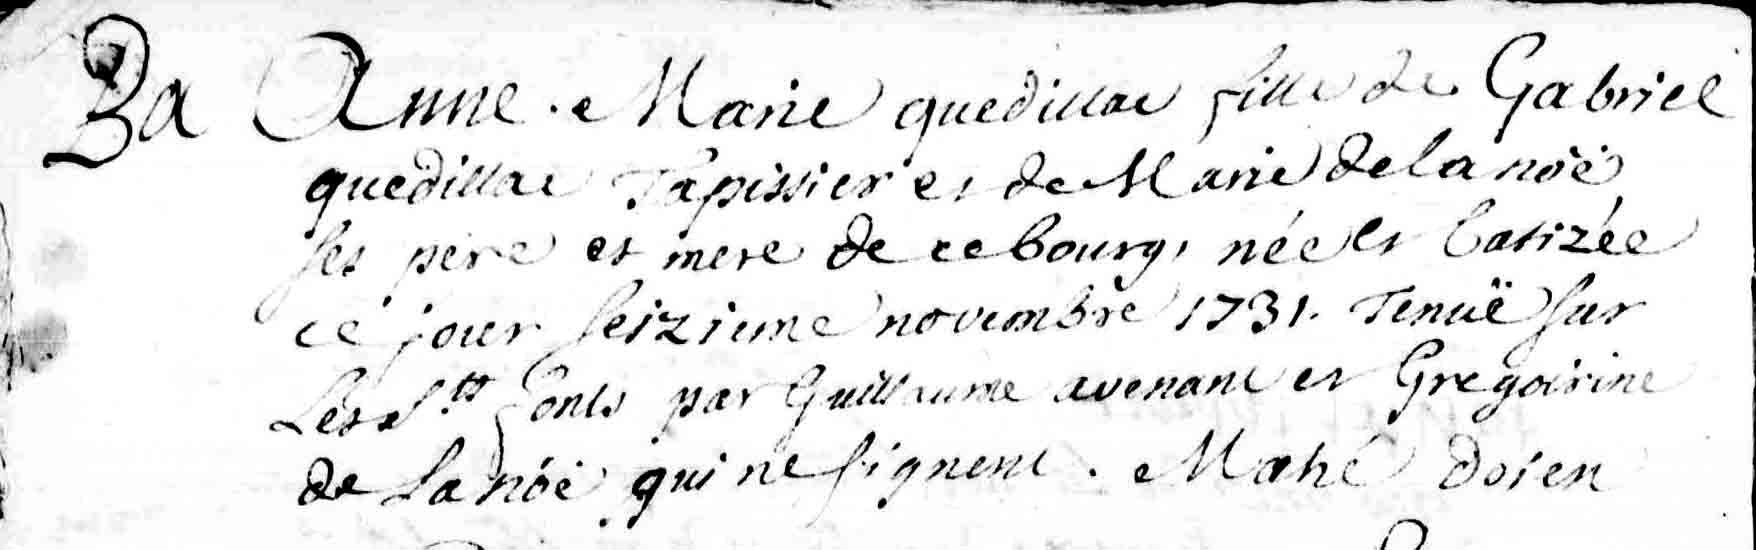 Ba Anne Marie quedillac fille de Gabriel
quedillac Tapissier et de Marie de la nöe
ses pere et mere de ce bourg, née et batizée
ce jour seizieme novembre 1731. Tenuë sur
Les Sts fonts par Guillaume avenant et Gregoirine
de La nöe qui ne signent. Mahé doien